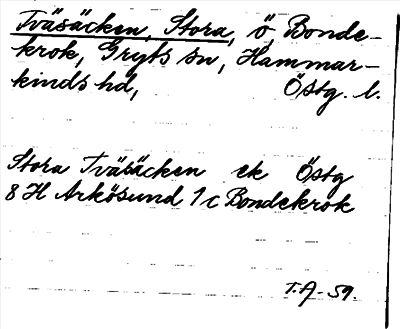 Tväsäcken, Stora, ö, Bonde-
krok, Gryts sn, Hammar-
kinds hd, Östg. l.
Stora Tväsäcken ek Östg
8 H Arkösund 1 c Bondekrok
T.A-59.